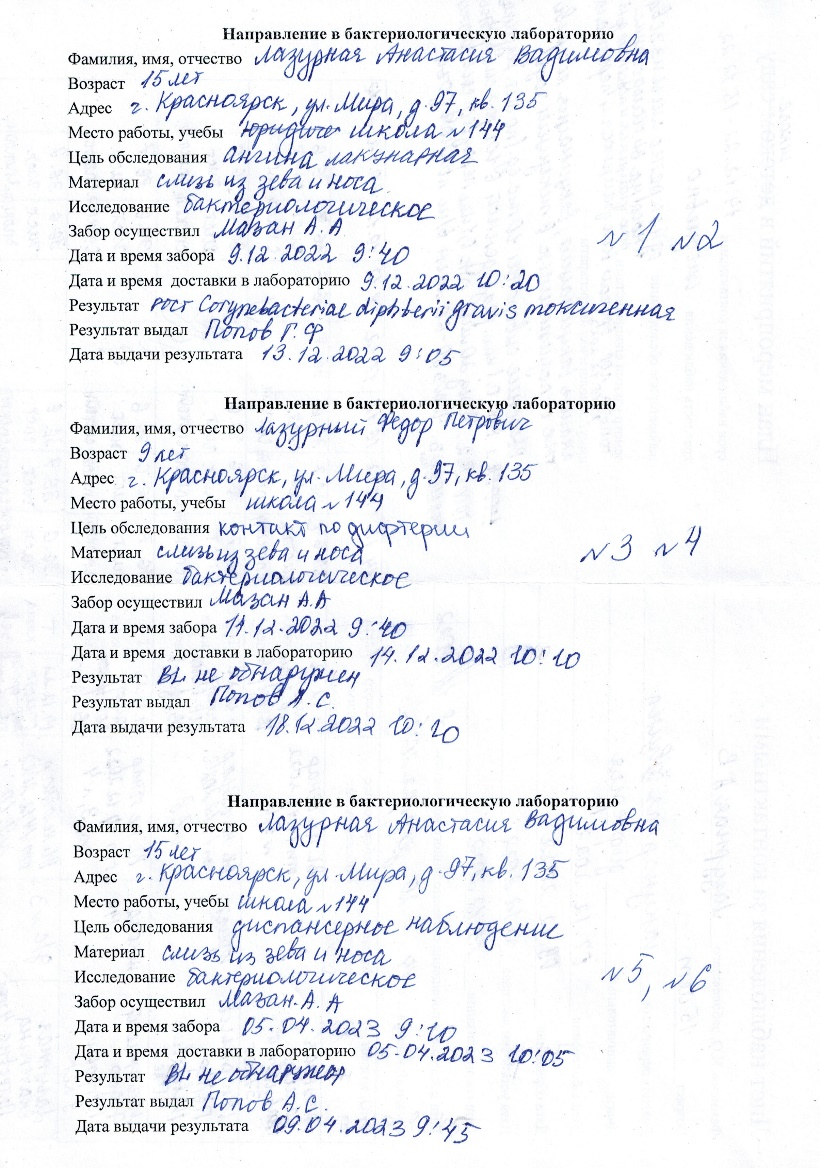 Направление в бактериологическую лабораторию
Фамилия, имя, отчество Лазурная Анастасия Вадимовна
Возраст 15 лет
Адрес г. Красноярск, ул. Мира, д. 97, кв. 135
Место работы, учебы школа №144
Цель обследования ангина лакунарная
Материал слизь из зева и носа
Исследование бактериологическое
Забор осуществил Мазан А. А
№1 №2
Дата и время забора 9.12.2022 9:40
Дата и время доставки в лабораторию 9.12.2022 10:20
Результат рост Corynebacteriae diphterii gravis токсигенная
Результат выдал Попов Г. Ф
Дата выдачи результата 13.12.2022 9:05
Направление в бактериологическую лабораторию
Фамилия, имя, отчество Лазурный Федор Петрович
Возраст 9 лет
Адрес г. Красноярск, ул. Мира, д. 97, кв. 135
Место работы, учебы школа №144
Цель обследования контакт по дифтерии
Материал слизь из зева и носа
№3 №4
Исследование бактериологическое
Забор осуществил Мазан А.А
Дата и время забора 14.12.2022 9:40
Дата и время доставки в лабораторию 14.12.2022 10:10
Результат BL не обнаружен
Результат выдал Попов А. С.
Дата выдачи результата 18.12.2022 10:20
Направление в бактериологическую лабораторию
Фамилия, имя, отчество Лазурная Анастасия Вадимовна
Возраст 15 лет
Адрес г. Красноярск, ул. Мира, д. 97, кв. 135
Место работы, учебы школа №144
Цель обследования диспансерное наблюдение
Материал слизь из зева и носа
Исследование бактериологическое
№5, №6
Забор осуществил Мазан. А. А
Дата и время забора 05.04.2023 9:10
Дата и время доставки в лабораторию 05.04.2023 10:05
Результат BL не обнаружен
Результат выдал Попов А.С.
Дата выдачи результата 09.04.2023 9:45